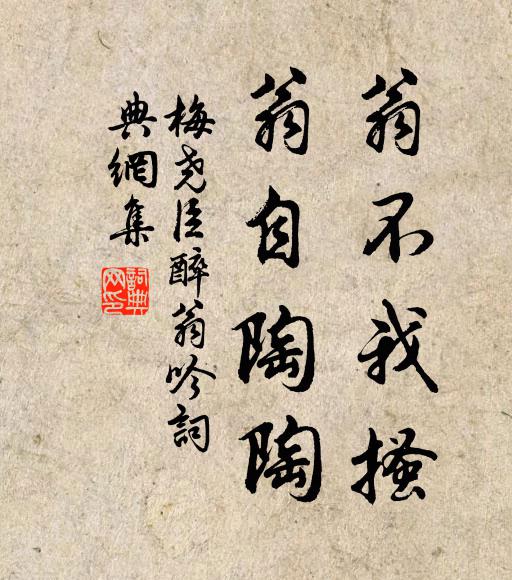 翁不我搔
翁自陶陶
梅尧臣醉翁吟詞
典網集
詞典网印